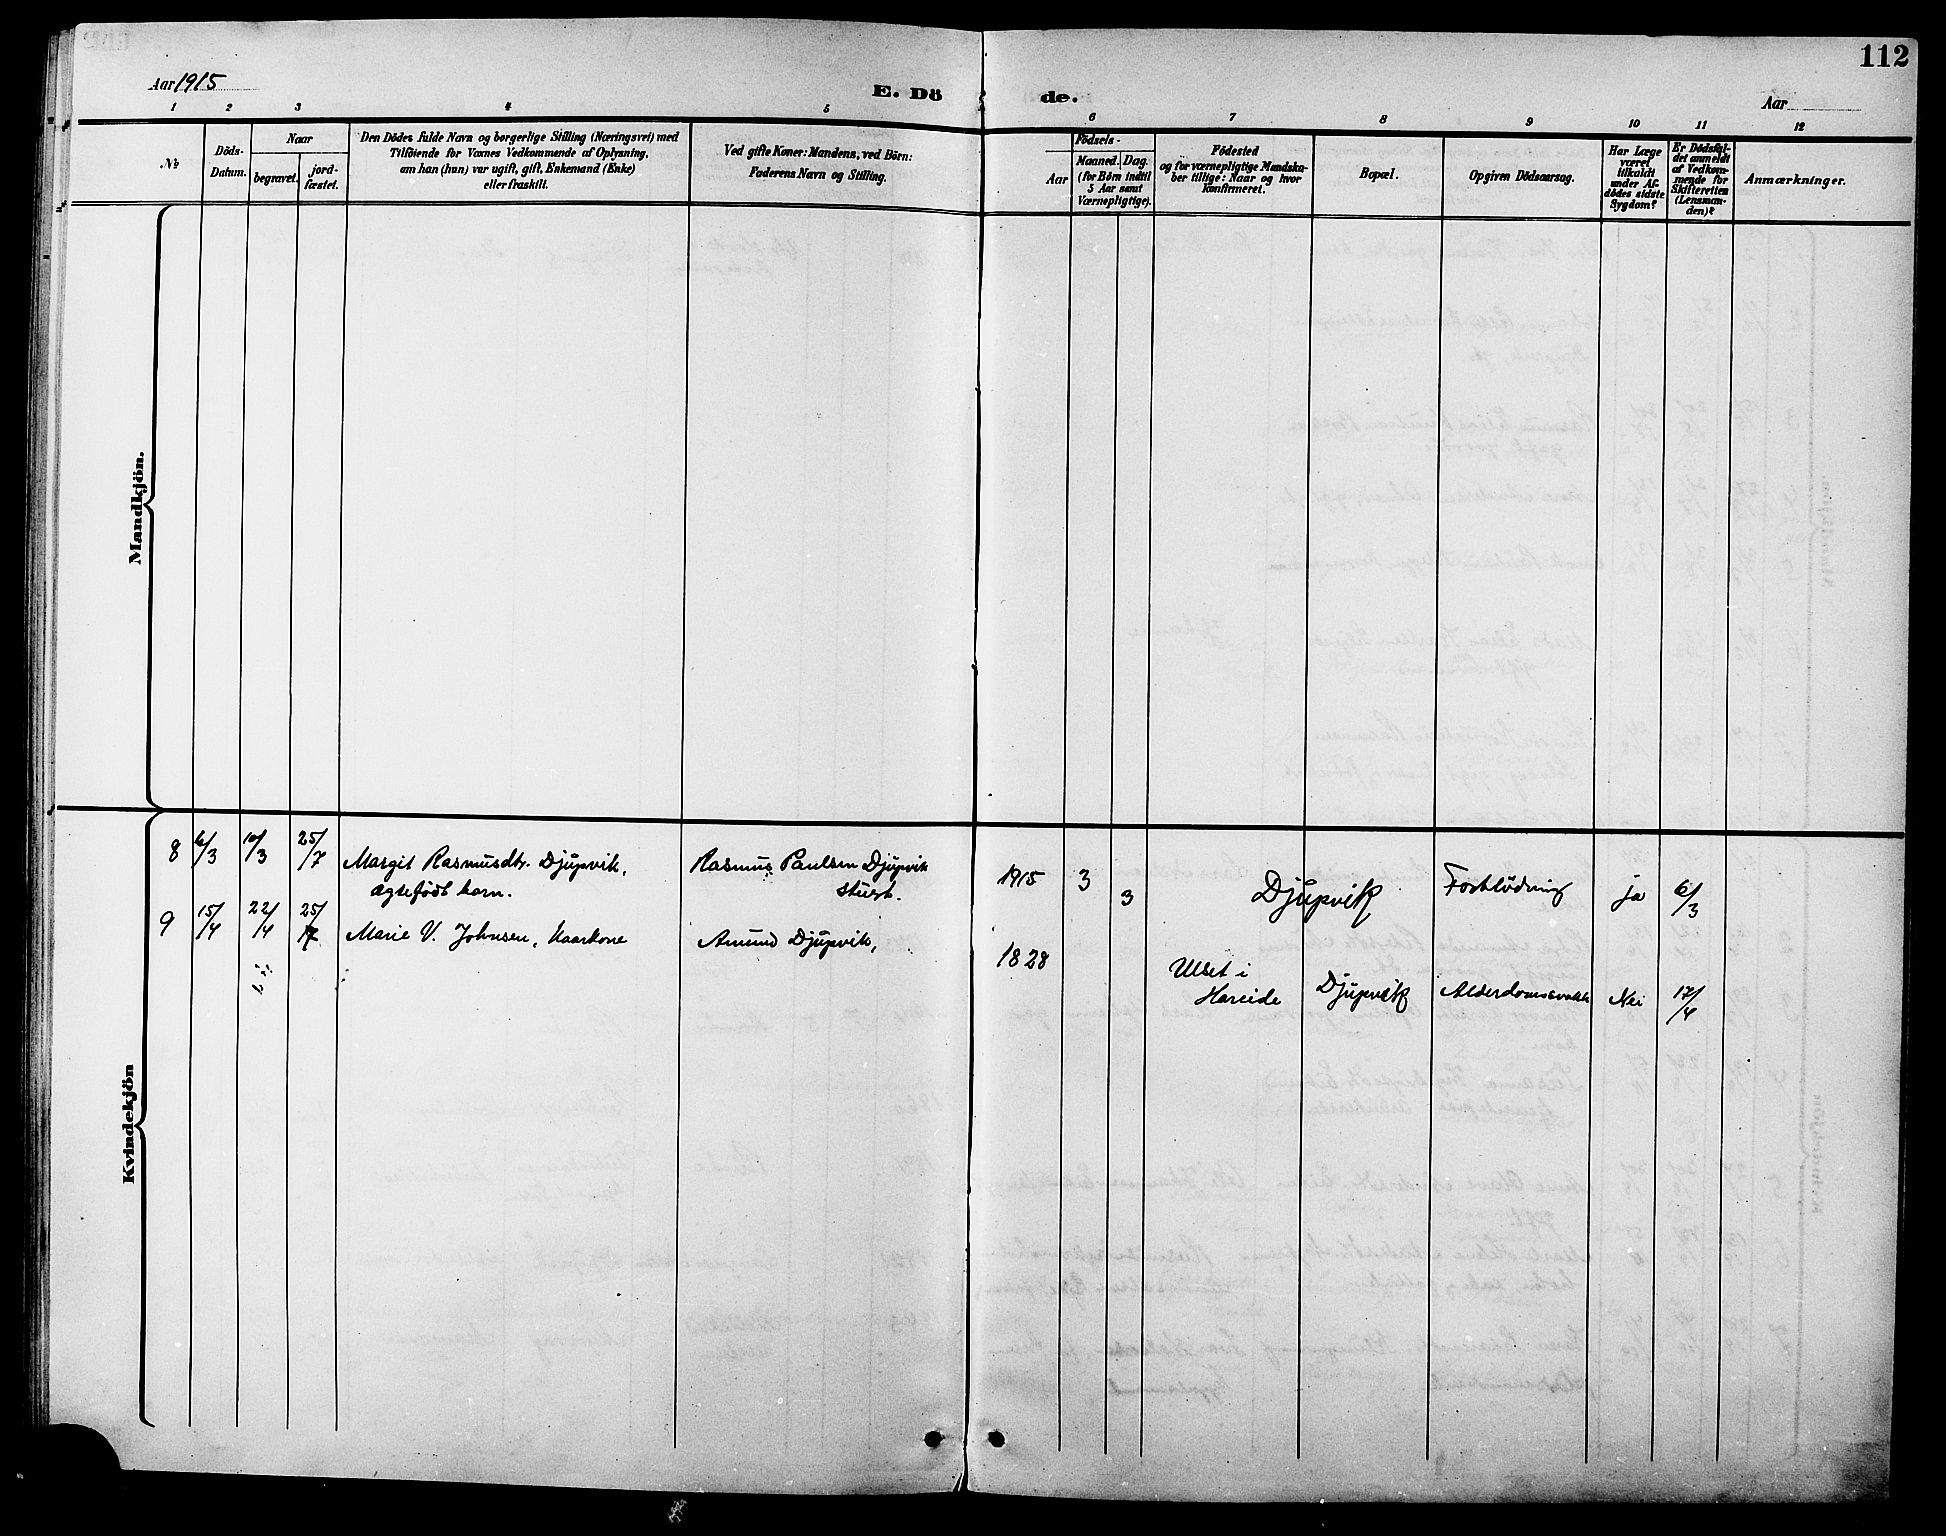 112
Aar 1915
E. Dö de.
Aar
1 2 3 4 5 6 7 8 9 10 11 12
No
Döds-
Datum.
Naar
begravet.
jord-
fæstet.
Den Dödes fulde Navn og borgerlige Stilling (Næringsvei) med
Tilföiende for Voxnes Vedkommende af Oplysning,
om han (hun) var ugift, gift, Enkemand (Enke)
eller fraskilt.
Ved gifte Koner: Mandens, ved Börn:
Faderens Navn og Stilling.
Födsels-
Aar
Maaned. Dag.
(for Börn indtil
5 Aar samt
Værnepligtige).
Födested
og for værnepligtige Mandska-
ber tillige: Naar og hvor
konfirmeret.
Bopæl.
Opgiven Dödsaarsag.
Har Læge
været
tilkaldt
under Af-
dödes sidste
Sygdom?
Er Dödsfal-
det anmeldt
af Vedkom-
mende for
Skifteretten
(Lensman-
den)?
Anmærkninger.
Mandkjön.
Kvindekjön
8 6/3 10/3 25/7 Margit Rasmusdtr. Djupvik, Rasmus Paulsen Djupvik 1915 3 3 Djupvik Forblödning ja 6/3
ægtefödt barn.
9 15/4 22/4 25/7 Marie V. Johnsen, Kaarkone Amund Djupvik, 1828
Ulset i
Hareide Djupvik Nei 17/4